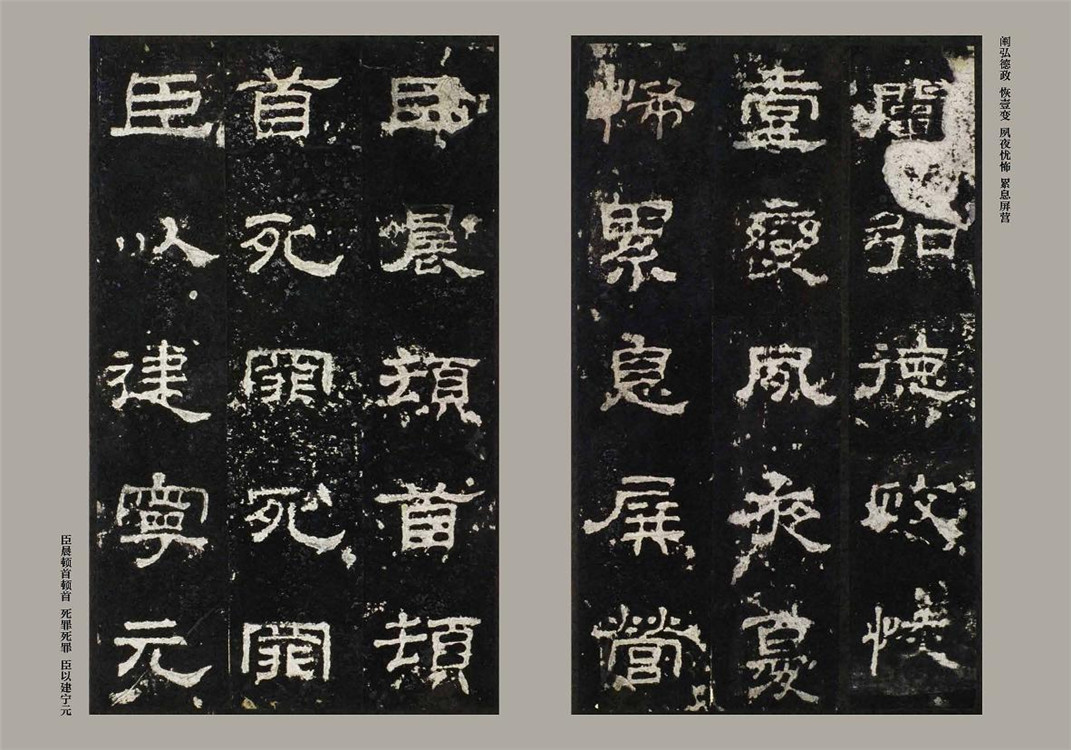 阐弘德政 恢壹变 夙夜忧怖 累息屏营
闡弘德政恢
壹變夙夜憂
怖累息屏營
臣晨頓首頓
首死罪死罪
臣以建寧元
臣晨顿首顿首 死罪死罪 臣以建宁元